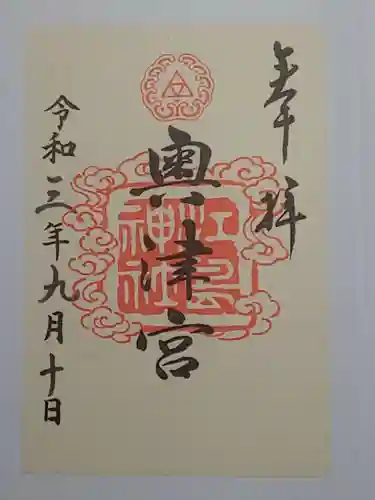 奉拝
奥津宮
江島神社
令和三年九月十日